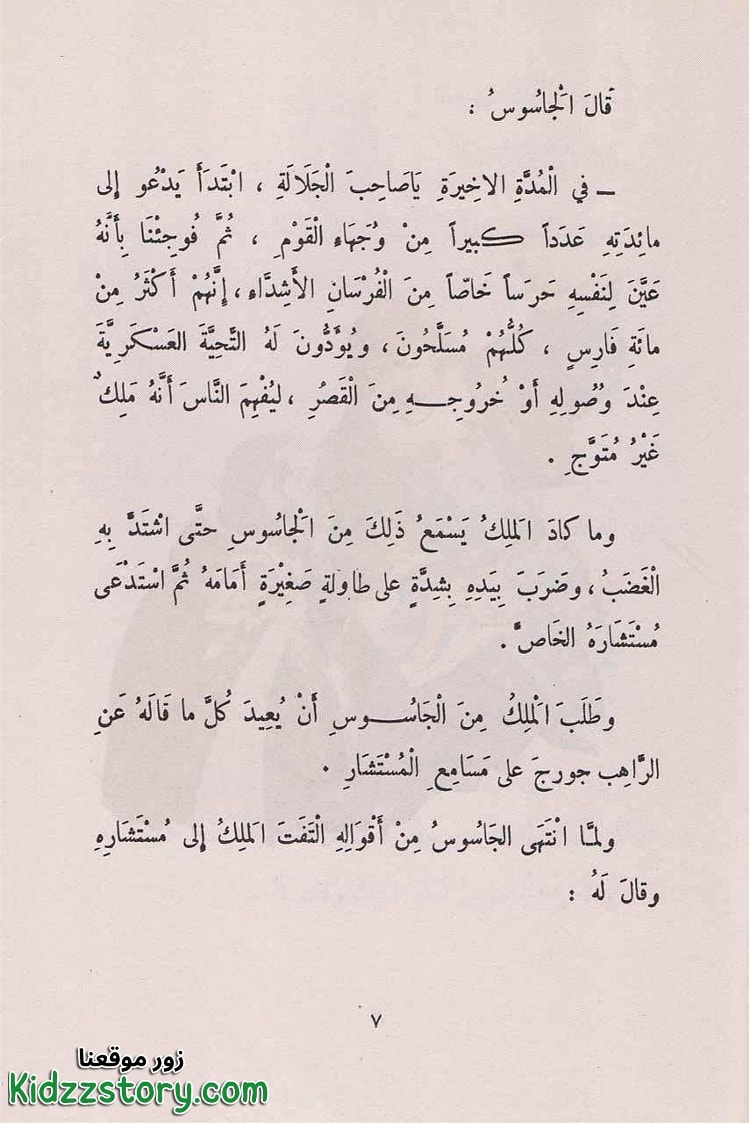 قَالَ الْجَاسُوسُ :
ــ في الْمُدَّةِ الاخِيرَةِ يَاصَاحِبَ الْجَلَالَةِ ، ابْتَدَأَ يَدْعُو إلى
مائِدَتِهِ عَدَداً كبيراً مِنْ وُجَهَاءِ الْقَوْمِ ، ثُمَّ فُوجِئْنَا بِأَنَّهُ
عَيَّنَ لِنَفْسِهِ حَرَساً خَاصّاً مِنَ الْفُرْسَانِ الأَشِدَّاءِ ، إِنَّهُمْ أَكْثَرُ مِنْ
مائَةِ فَارِسٍ ، كُلُّهُمْ مُسَلَّحُونَ ، ويُؤَدُّونَ لَهُ التَّحِيَّةَ العَسْكَرِيَّةَ
عِنْدَ وُصُولِهِ أَوْ خُروُجِــهِ مِنَ الْقَصْرِ ، لِيُفْهِمَ النَّاسَ أَنَّهُ مَلِكٌ
غَيْرُ مُتَوَّجٍ .
وما كادَ الَملِكُ يَسْمَعُ ذَلِكَ مِنَ الْجَاسُوسِ حتَّى اشْتَدَّ بِهِ
الْغَضَبُ ، وضَرَبَ بِيَدِهِ بِشِدَّةٍ على طاوِلةٍ صَغِيْرَةٍ أَمَامَهُ ثُمَّ اسْتَدْعَى
مُسْتَشَارَهُ الخَاصَّ .
وطَلَبَ الْمَلِكُ مِنَ الْجَاسُــوسِ أَنْ يُعِيدَ كُلَّ ما قَالَهُ عَنِ
الرَّاهِب جورجَ على مَسَامِعِ الْمُسْتَشَارِ .
ولمــَّا انْتَهَى الجَاسُوسُ مِنْ أَقْوَالِهِ الْتَفَتَ الَملِكُ إلى مُسْتَشَارِهِ
وقالَ لَهُ :
٧
زور موقعنا
Kidzzstory.com